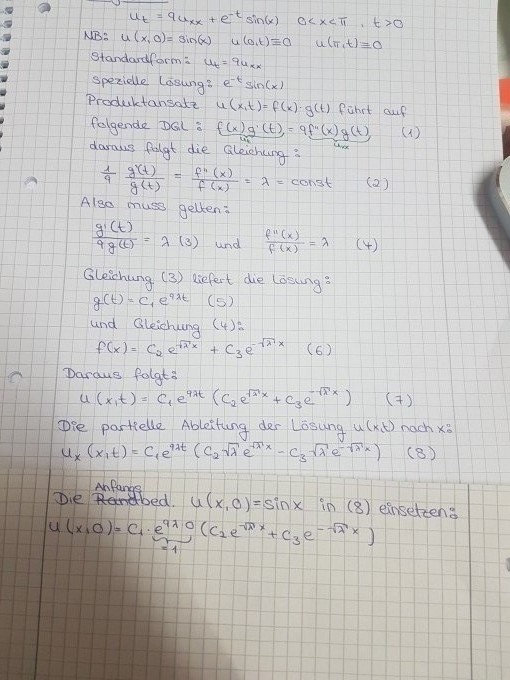 u_t = 9u_xx + e^-t sin(x)   0<x<π, t>0
NB: u(x,0) = sin(x)   u(0,t) ≡ 0   u(π,t) ≡ 0
Standardform: u_t = 9u_xx
spezielle Lösung: e^-t sin(x)
Produktansatz u(x,t) = f(x)·g(t) führt auf
folgende DGL: f(x)g'(t) = 9f''(x)g(t)   (1)
u_t   u_xx
daraus folgt die Gleichung:
1/9 g'(t)/g(t) = f''(x)/f(x) = λ = const   (2)
Also muss gelten:
g'(t)/9g(t) = λ (3) und f''(x)/f(x) = λ   (4)
Gleichung (3) liefert die Lösung:
g(t) = C₁e^9λt   (5)
und Gleichung (4):
f(x) = C₂e^√λx + C₃e^-√λx   (6)
Daraus folgt:
u(x,t) = C₁e^9λt (C₂e^√λx + C₃e^-√λx)   (7)
Die partielle Ableitung der Lösung u(x,t) nach x:
u_x(x,t) = C₁e^9λt (C₂√λe^√λx - C₃√λe^-√λx)   (8)
Anfangs
Die Randbed. u(x,0) = sinx in (8) einsetzen:
u(x,0) = C₁·e^9λ0 (C₂e^√λx + C₃e^-√λx)
=1